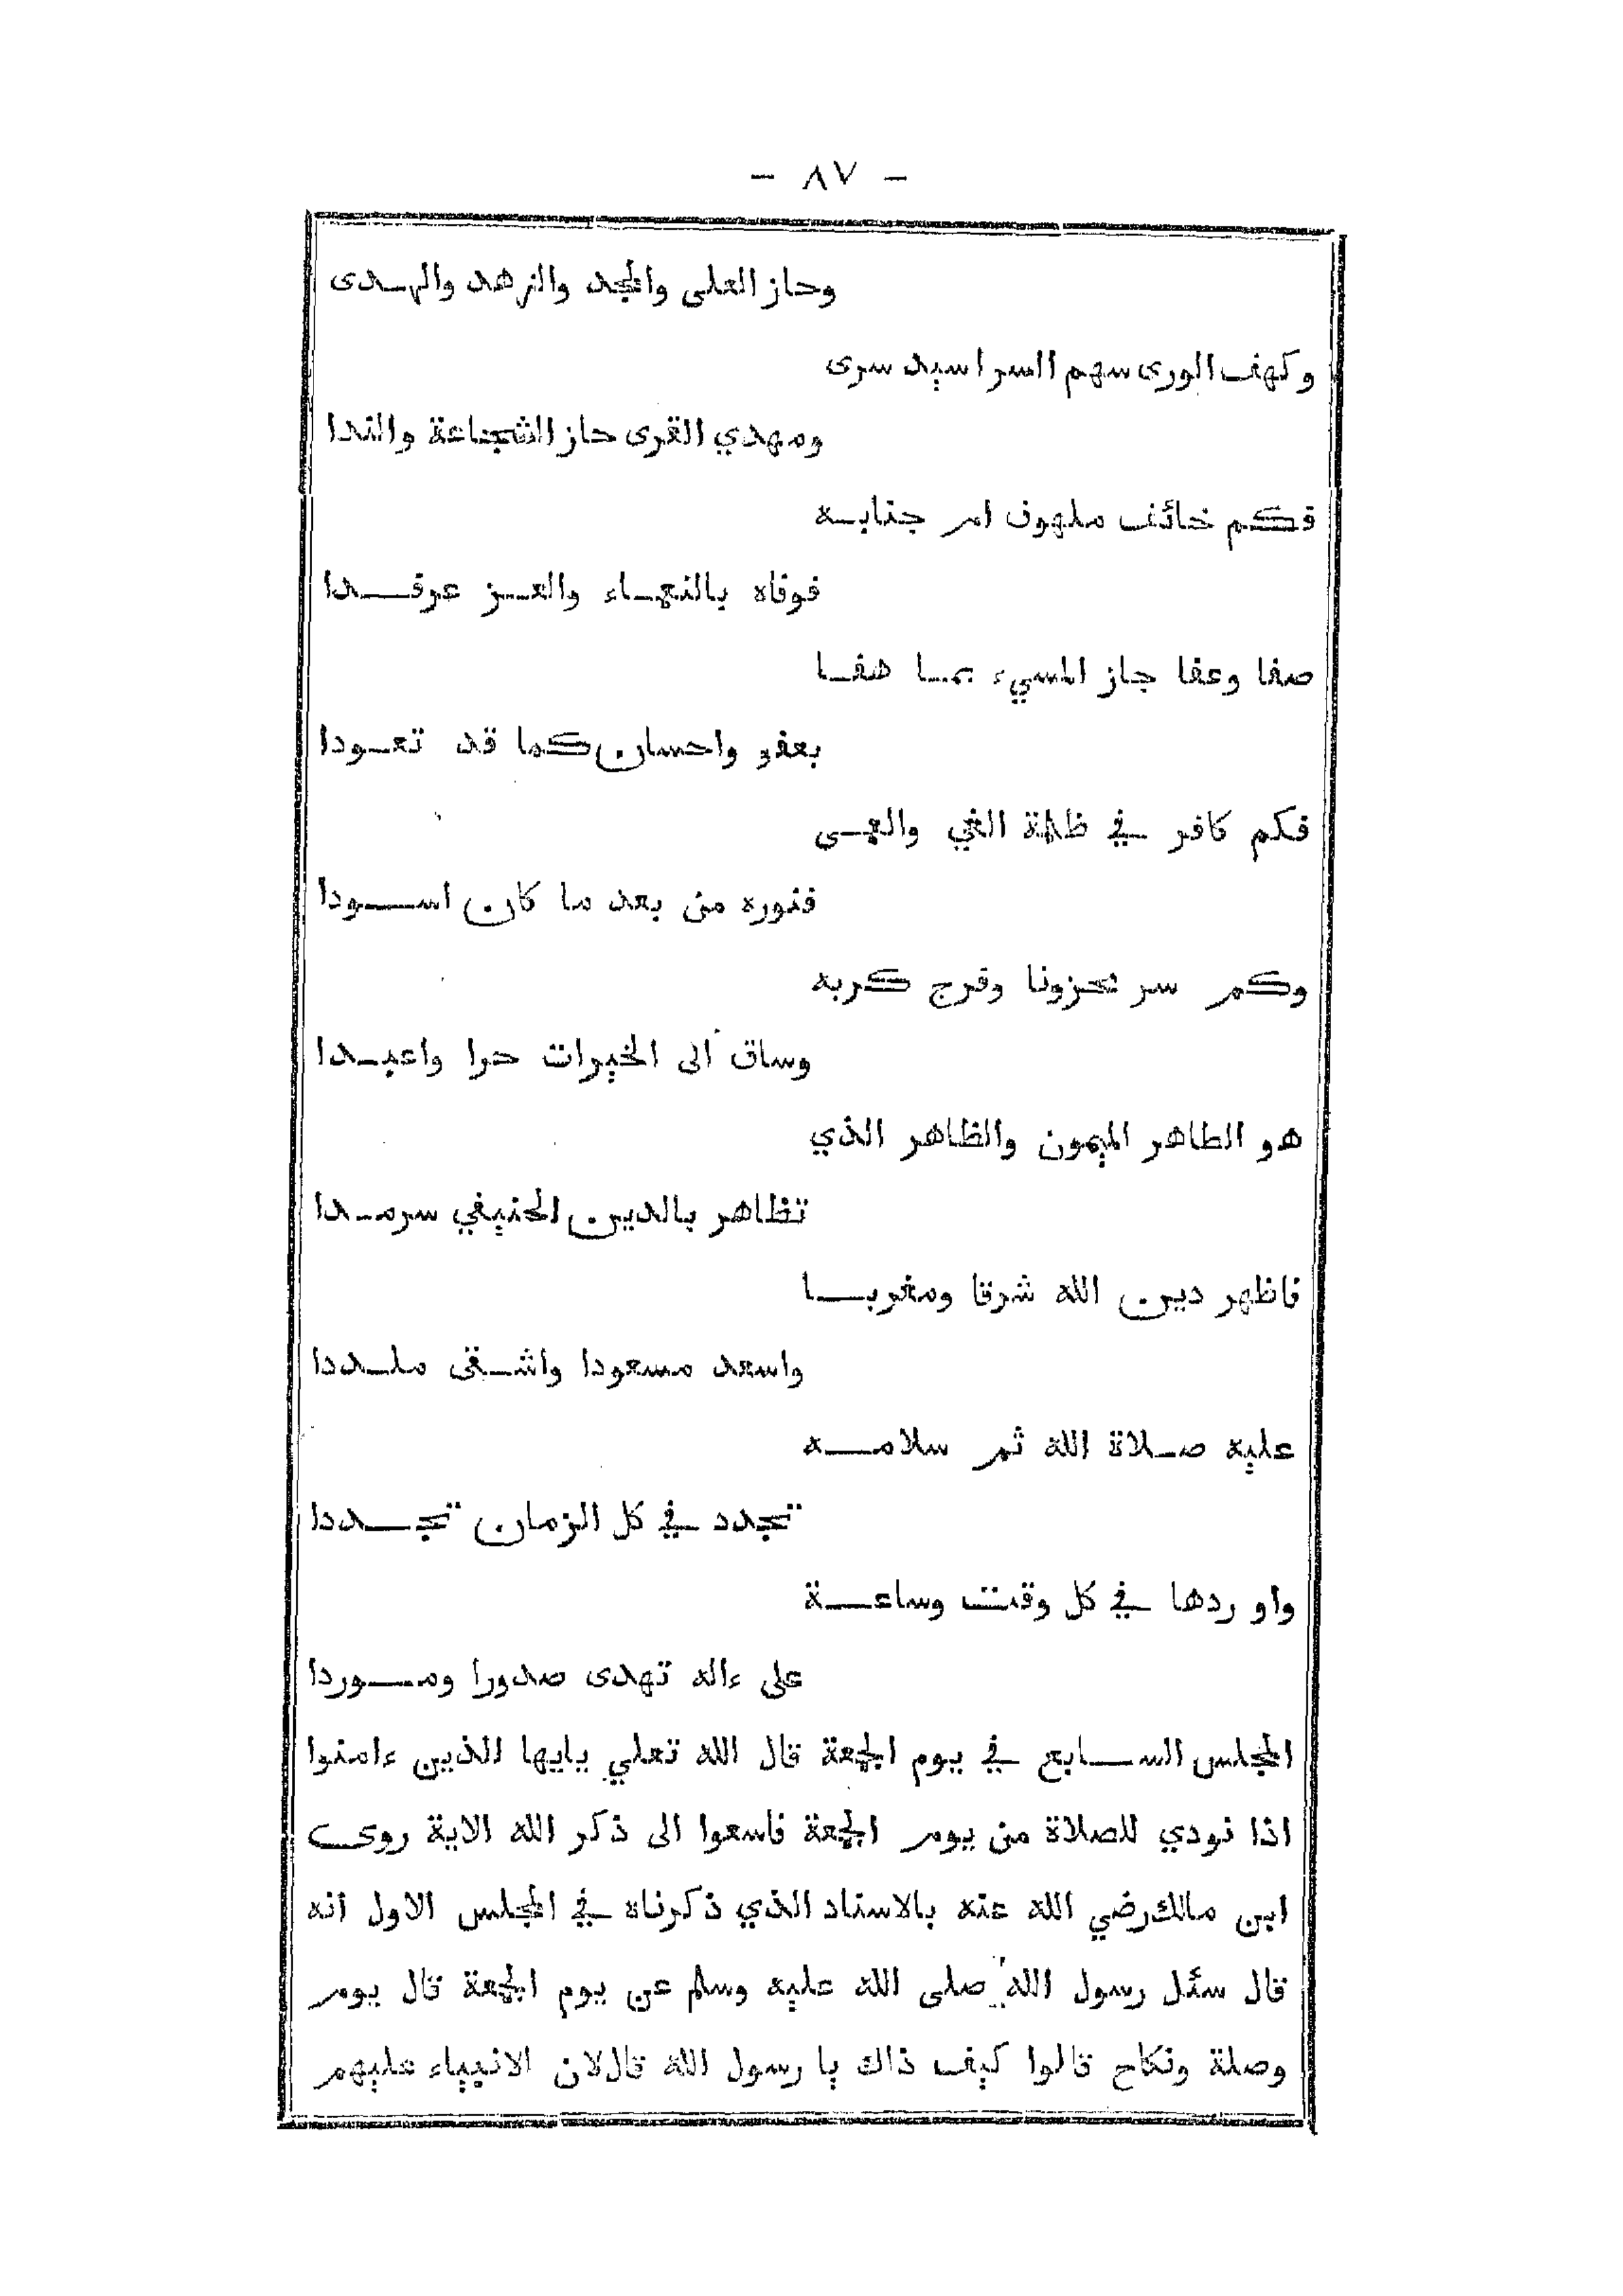 - ٨٧ -
وحاز العلى والمجد والزهد والهدى
وكهف الورى سهم السرا سيد سرى
ومهدي القرى حاز الشجاعة والندا
فكم خائف ملهوف ام جنابه
فوفاه بالنعماء والعز عرفدا
صفا وعفا جاز المسيء بما هفا
بعفو واحسان كما قد تعودا
فكم كافر في ظلمة الغي والعمى
فنوره من بعد ما كان اسودا
وكم سر محزونا وفرج كربه
وساق الى الخيرات حرا واعبدا
هو الطاهر الميمون والظاهر الذي
تظاهر بالدين الحنيفي سرمدا
فاظهر دين الله شرقا ومغربا
واسعد مسعودا واشقى ملددا
عليه صلاة الله ثم سلامه
تجدد في كل الزمان تجددا
واو ردها في كل وقت وساعة
على ءاله تهدى صدورا وموردا
المجلس السابع في يوم الجمعة قال الله تعلي يايها الذين ءامنوا
اذا نودي للصلاة من يوم الجمعة فاسعوا الى ذكر الله الاية روى
ابن مالك رضي الله عنه بالاسناد الذي ذكرناه في المجلس الاول انه
قال سئل رسول الله صلى الله عليه وسلم عن يوم الجمعة قال يوم
وصلة ونكاح قالوا كيف ذاك يا رسول الله قال لان الانبياء عليهم